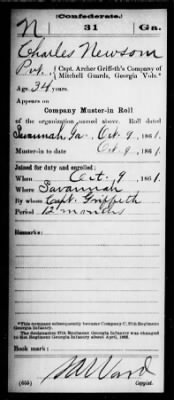 (Confederate.)
N 31 Ga.
Charles Newsom
Pvt., Capt. Archer Griffeth's Company of
Mitchell Guards, Georgia Vols.*
Age 34 years.
Appears on
Company Muster-in Roll
of the organization named above. Roll dated
Savannah, Ga. Oct. 9, 1861.
Muster-in to date Oct. 9, 1861.
Joined for duty and enrolled:
When Oct. 9, 1861.
Where Savannah
By whom Capt. Griffeth
Period 12 months
Remarks:
*This company subsequently became Company C, 27th Regiment
Georgia Infantry.
The designation 27th Regiment Georgia Infantry was changed
to the 31st Regiment Georgia Infantry about April, 1862.
Book mark:
(655) Copyist.